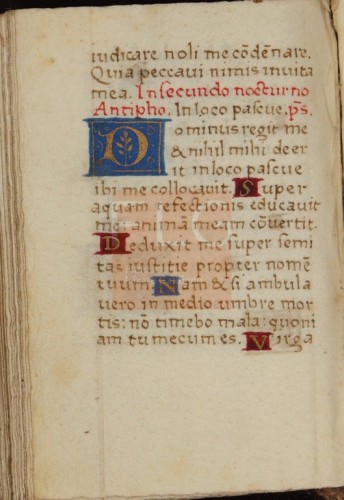 iudicare noli me cōdēnare.
Quia peccavi nimis in vita
mea. In secundo nocturno
Antipho. In loco pascue. ps.
Dominus regit me
& nihil mihi deer
it in loco pascue
ibi me collocavit. Super
aquam refectionis educavit
me: animā meam cōvertit.
Deduxit me super semi
tas iustitie propter nomē
suum. Nam & si ambula
vero in medio umbre mor
tis: nō timebo mala: quoni
am tu mecum es. Virga